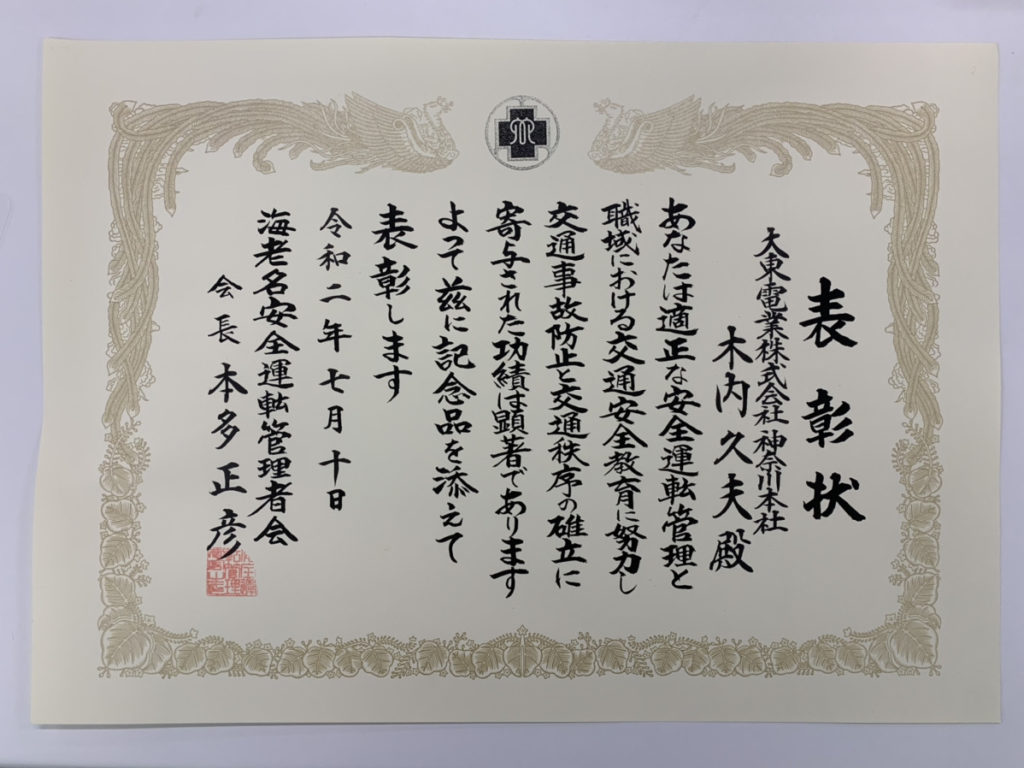 表彰状
大東電業株式会社 神奈川本社
木内久夫殿
あなたは適正な安全運転管理と
職域における交通安全教育に努力し
交通事故防止と交通秩序の確立に
寄与された功績は顕著であります
よって茲に記念品を添えて
表彰します
令和二年七月十日
海老名安全運転管理者会
会長 本多正彦